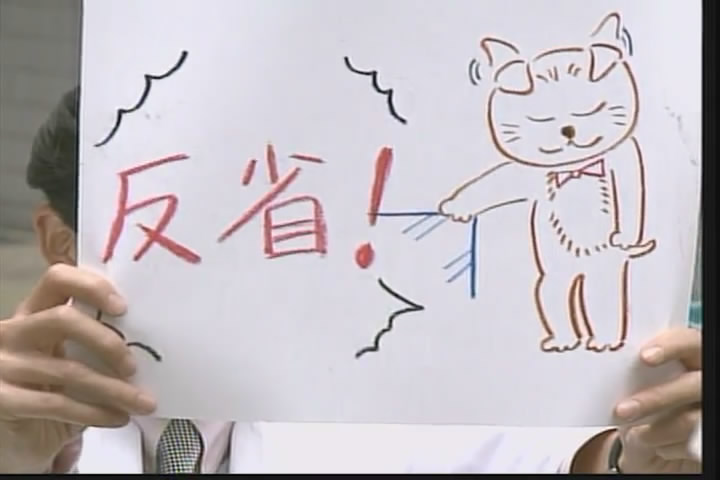 反省!